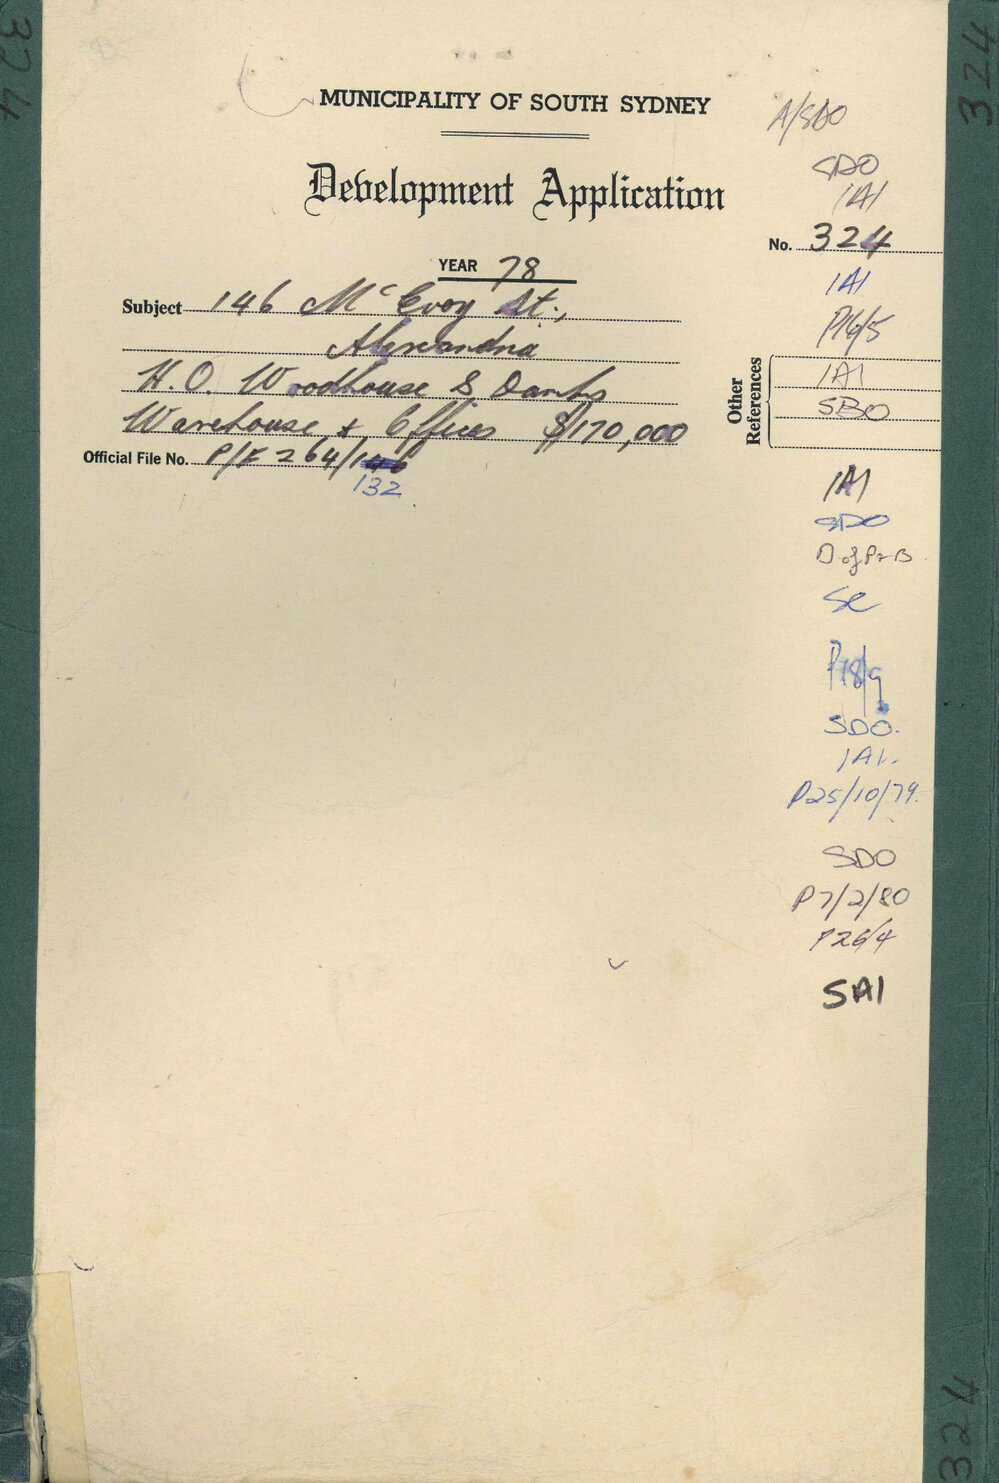 MUNICIPALITY OF SOUTH SYDNEY
Development Application
YEAR 78
Subject 146 McEvoy St.,
Alexandria
H.O. Woodhouse & Danks
Warehouse & Offices $170,000
Official File No. P/F 264/
132
A/SDO
SDO
1A1
No. 324
1A1
P16/5
Other References
1A1
SBO
1A1
SDO
D. of P & B
P18/9
SDO.
1A1.
P25/10/79.
SDO
P7/2/80
P26/4
SA1
324
324
324